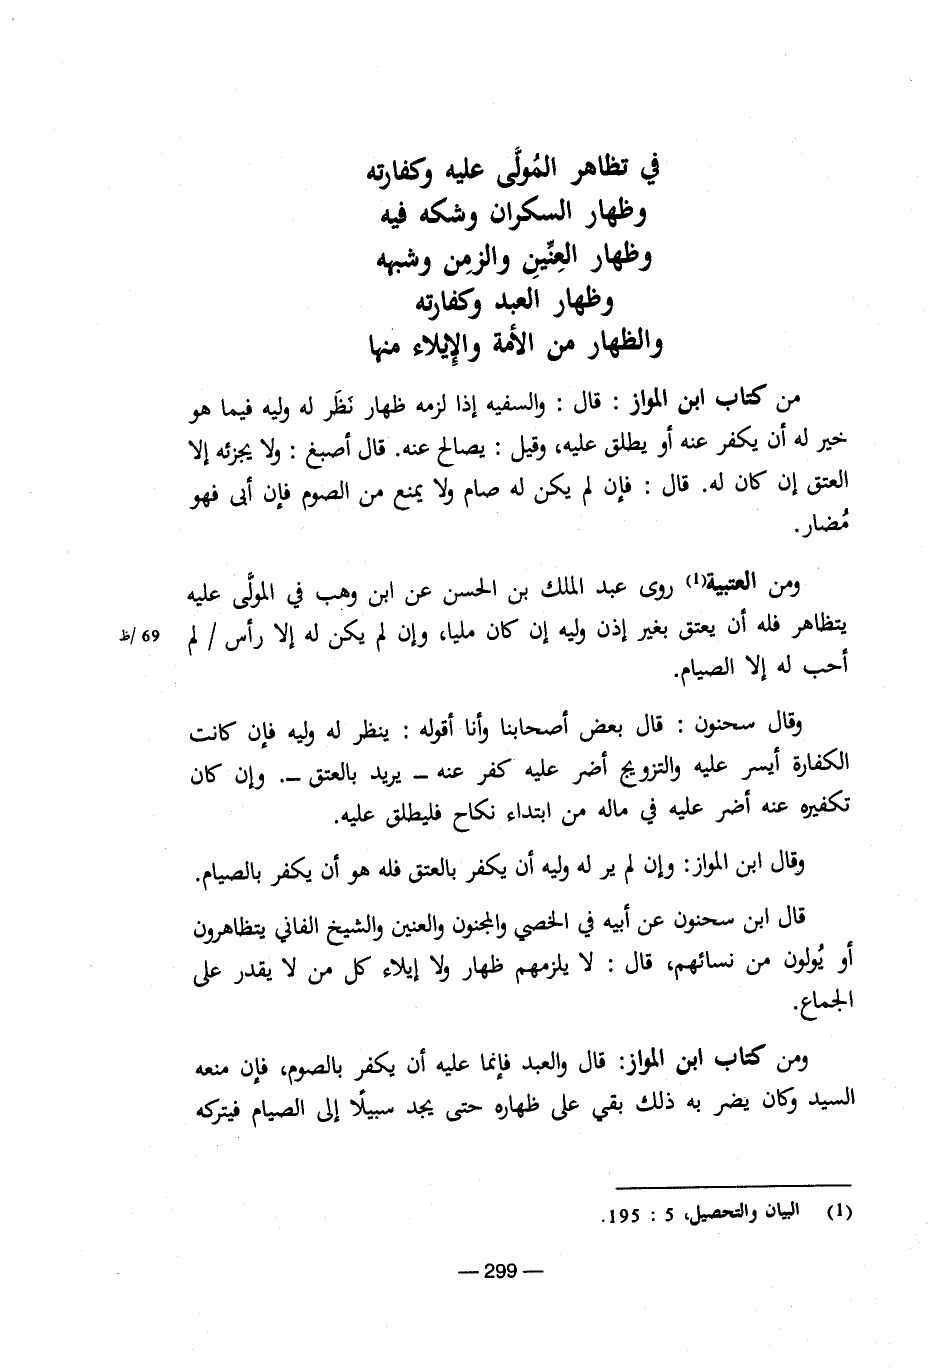 في تظاهر المُولَّى عليه وكفارته
وظهار السكران وشكه فيه
وظهار العِنِّينِ والزمِن وشبهه
وظهار العبد وكفارته
والظهار من الأمة والإيلاء منها
من كتاب ابن المواز : قال : والسفيه إذا لزمه ظهار نَظَر له وليه فيما هو
خير له أن يكفر عنه أو يطلق عليه، وقيل : يصالح عنه. قال أصبغ : ولا يجزئه إلا
العتق إن كان له. قال : فإن لم يكن له صام ولا يمنع من الصوم فإن أبى فهو
مُضار.
ومن العتبية(1) روى عبد الملك بن الحسن عن ابن وهب في المولَّى عليه
يتظاهر فله أن يعتق بغير إذن وليه إن كان مليا، وإن لم يكن له إلا رأس / لم
69 /ظ
أحب له إلا الصيام.
وقال سحنون : قال بعض أصحابنا وأنا أقوله : ينظر له وليه فإن كانت
الكفارة أيسر عليه والتزويج أضر عليه كفر عنه – يريد بالعتق –. وإن كان
تكفيره عنه أضر عليه في ماله من ابتداء نكاح فليطلق عليه.
وقال ابن المواز: وإن لم ير له وليه أن يكفر بالعتق فله هو أن يكفر بالصيام.
قال ابن سحنون عن أبيه في الخصي والمجنون والعنين والشيخ الفاني يتظاهرون
أو يُولون من نسائهم، قال : لا يلزمهم ظهار ولا إيلاء كل من لا يقدر على
الجماع.
ومن كتاب ابن المواز: قال والعبد فإنما عليه أن يكفر بالصوم، فإن منعه
السيد وكان يضر به ذلك بقي على ظهاره حتى يجد سبيلًا إلى الصيام فيتركه
(1) البيان والتحصيل، 5 : 195.
— 299 —